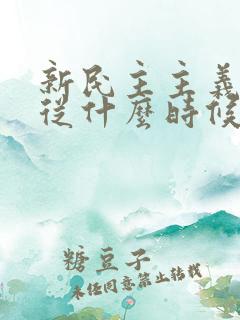 新民主主義
從什麼時候
糖豆子
未任同意禁止转载